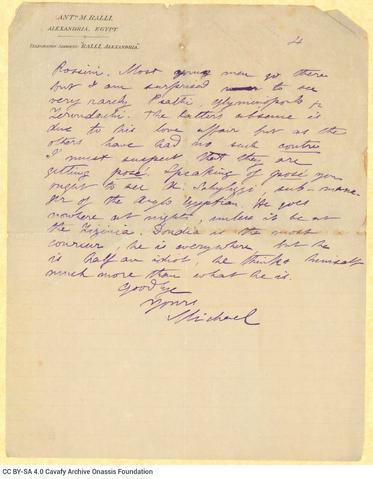 ANTº. M. RALLI.
ALEXANDRIA, EGYPT.
TELEGRAPHIC ADDRESS: RALLI, ALEXANDRIA.
4
Rossini. Most young men go there
but I am surprised to see
very rarely Psalti,
Zerundachi. The latters absence is
due to his love affair but as the
others have had no such
I must suspect that they are
getting posé. Speaking of posé you
ought to see Mr. sub-mana-
ger of the Anglo Egyptian. He goes
nowhere at night, unless it be at
the Zizinia. is the most
coureur, he is everywhere, but he
is half an idiot, he thinks himself
much more than what he is.
Goodbye
Yours
Michael
CC BY-SA 4.0 Cavafy Archive Onassis Foundation